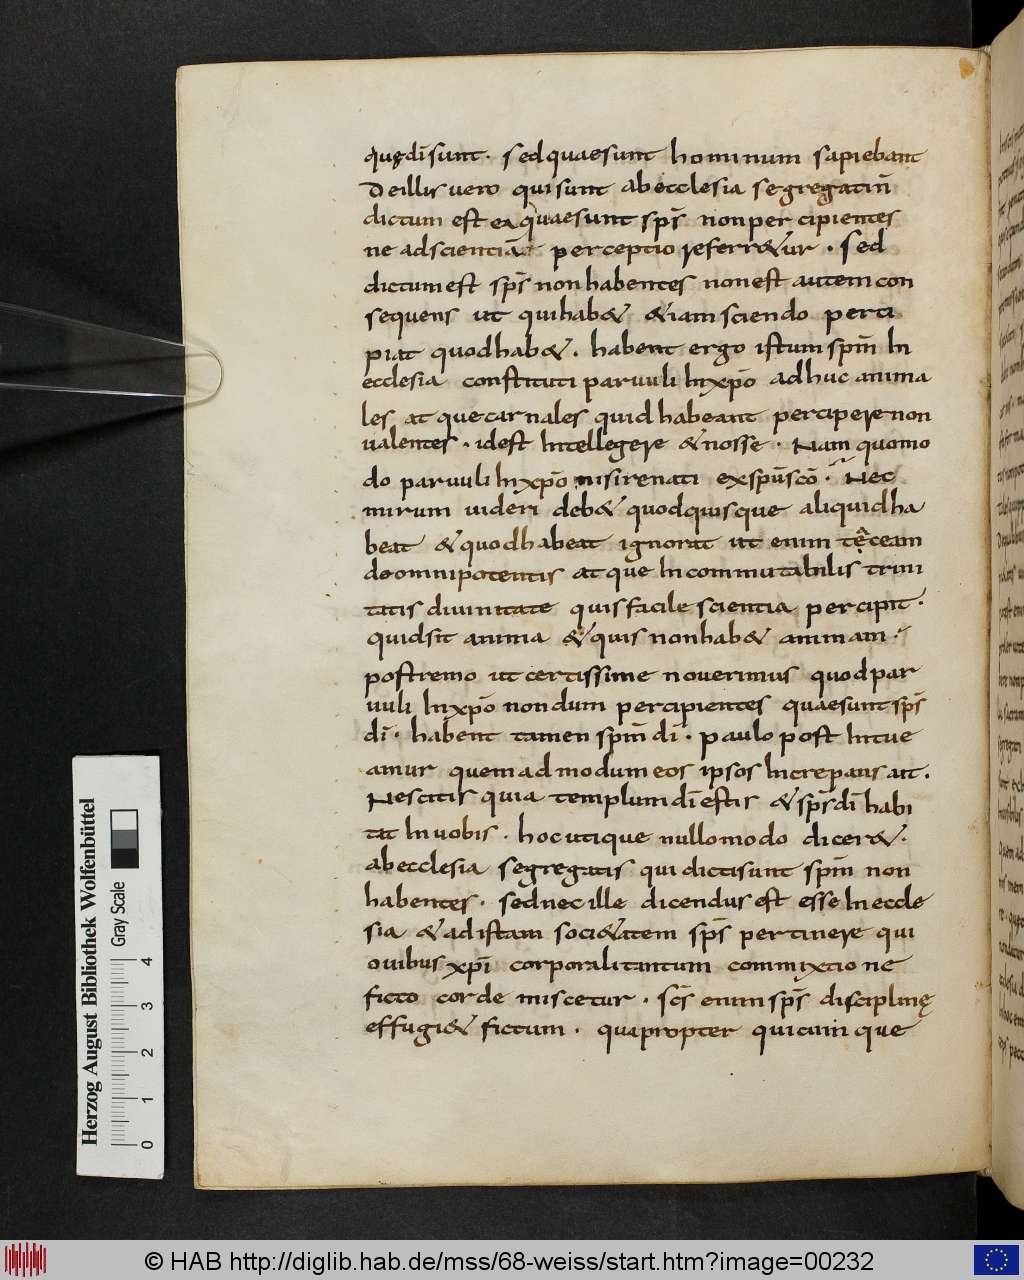 quę dī sunt· sed quae sunt hominum sapiebant
De illis uero qui sunt ab ecclesia segregati n̄
dictum est ea quae sunt sp̄s non percipientes
ne ad scientiā perceptio referr&ur · Sed
dictum est sp̄s non habentes non est autem con
sequens ut qui hab& &iam sciendo perci
piat quod hab&. habent ergo istum sp̄m In
ecclesia constituti paruuli In xp̄o adhuc anima
les atque carnales quid habeant percipere non
ualentes · id est Intellegere & nosse · Nam quomo
do paruuli In xp̄o nisi renati ex sp̄u s̄cō · Nec
mirum uideri deb& quod quisque aliquid ha
beat & quod habeat ignorat ut enim taceam
de omnipotentis atque Incommutabilis trini
tatis diuinitate quis facile scientia percipit·
quid sit anima & quis non hab& animam ·
postremo ut certissime nouerimus quod par
uuli In xp̄o nondum percipientes quae sunt sp̄s
dī · habent tamen sp̄m dī · paulo post Intue
amur quemadmodum eos ipsos Increpans ait.
Nescitis quia templum dī estis & sp̄s dī habi
tat In uobis · hoc utique nullo modo dicer&·
ab ecclesia segregatis qui dicti sunt sp̄m non
habentes· sed nec ille dicendus est esse In eccle
sia & ad istam soci&atem sp̄s pertinere qui
ouibus xp̄i corporali tantum commixtione
ficto corde miscetur · s̄cs enim sp̄s disciplinę
effugi& fictum · quapropter quicumque
Herzog August Bibliothek Wolfenbüttel
Gray Scale
0 1 2 3 4
© HAB http://diglib.hab.de/mss/68-weiss/start.htm?image=00232